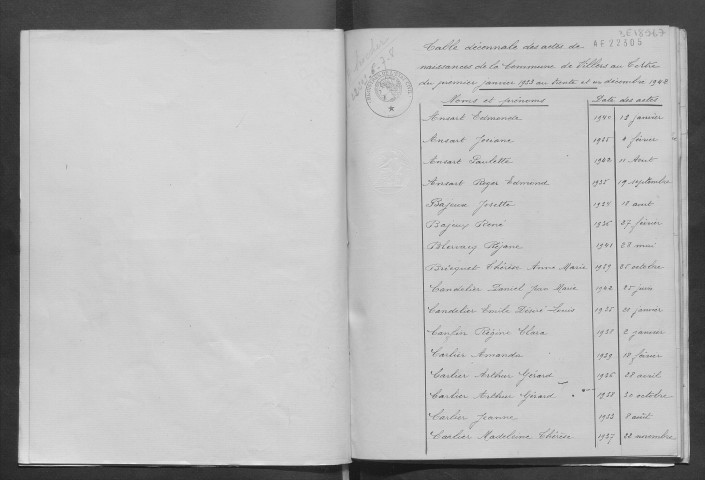 3E18967
AF 22305
Table décennale des actes de
naissances de la Commune de Villers au Tertre
du premier janvier 1933 au trente et un décembre 1942
Noms et prénoms Date des actes
Ansart Edmonde 1940 12 janvier
Ansart Josiane 1935 4 février
Ansart Paulette 1942 11 Août
Ansart Roger Edmond 1935 19 septembre
Bajeux Josette 1934 18 avril
Bajeux René 1936 27 février
Blervacq Rejane 1941 28 mai
Bricquet Thérèse Anne Marie 1939 25 octobre
Candelier Daniel Jean Marie 1942 25 juin
Candelier Emile Désiré Louis 1935 21 janvier
Régine Clara 2 janvier
Carlier Amanda 1939 18 février
Carlier Arthur Gérard 1936 28 avril
Carlier Arthur Gérard 1938 30 octobre
Carlier Jeanne 1933 8 août
Carlier Madeleine Thérèse 1937 22 novembre